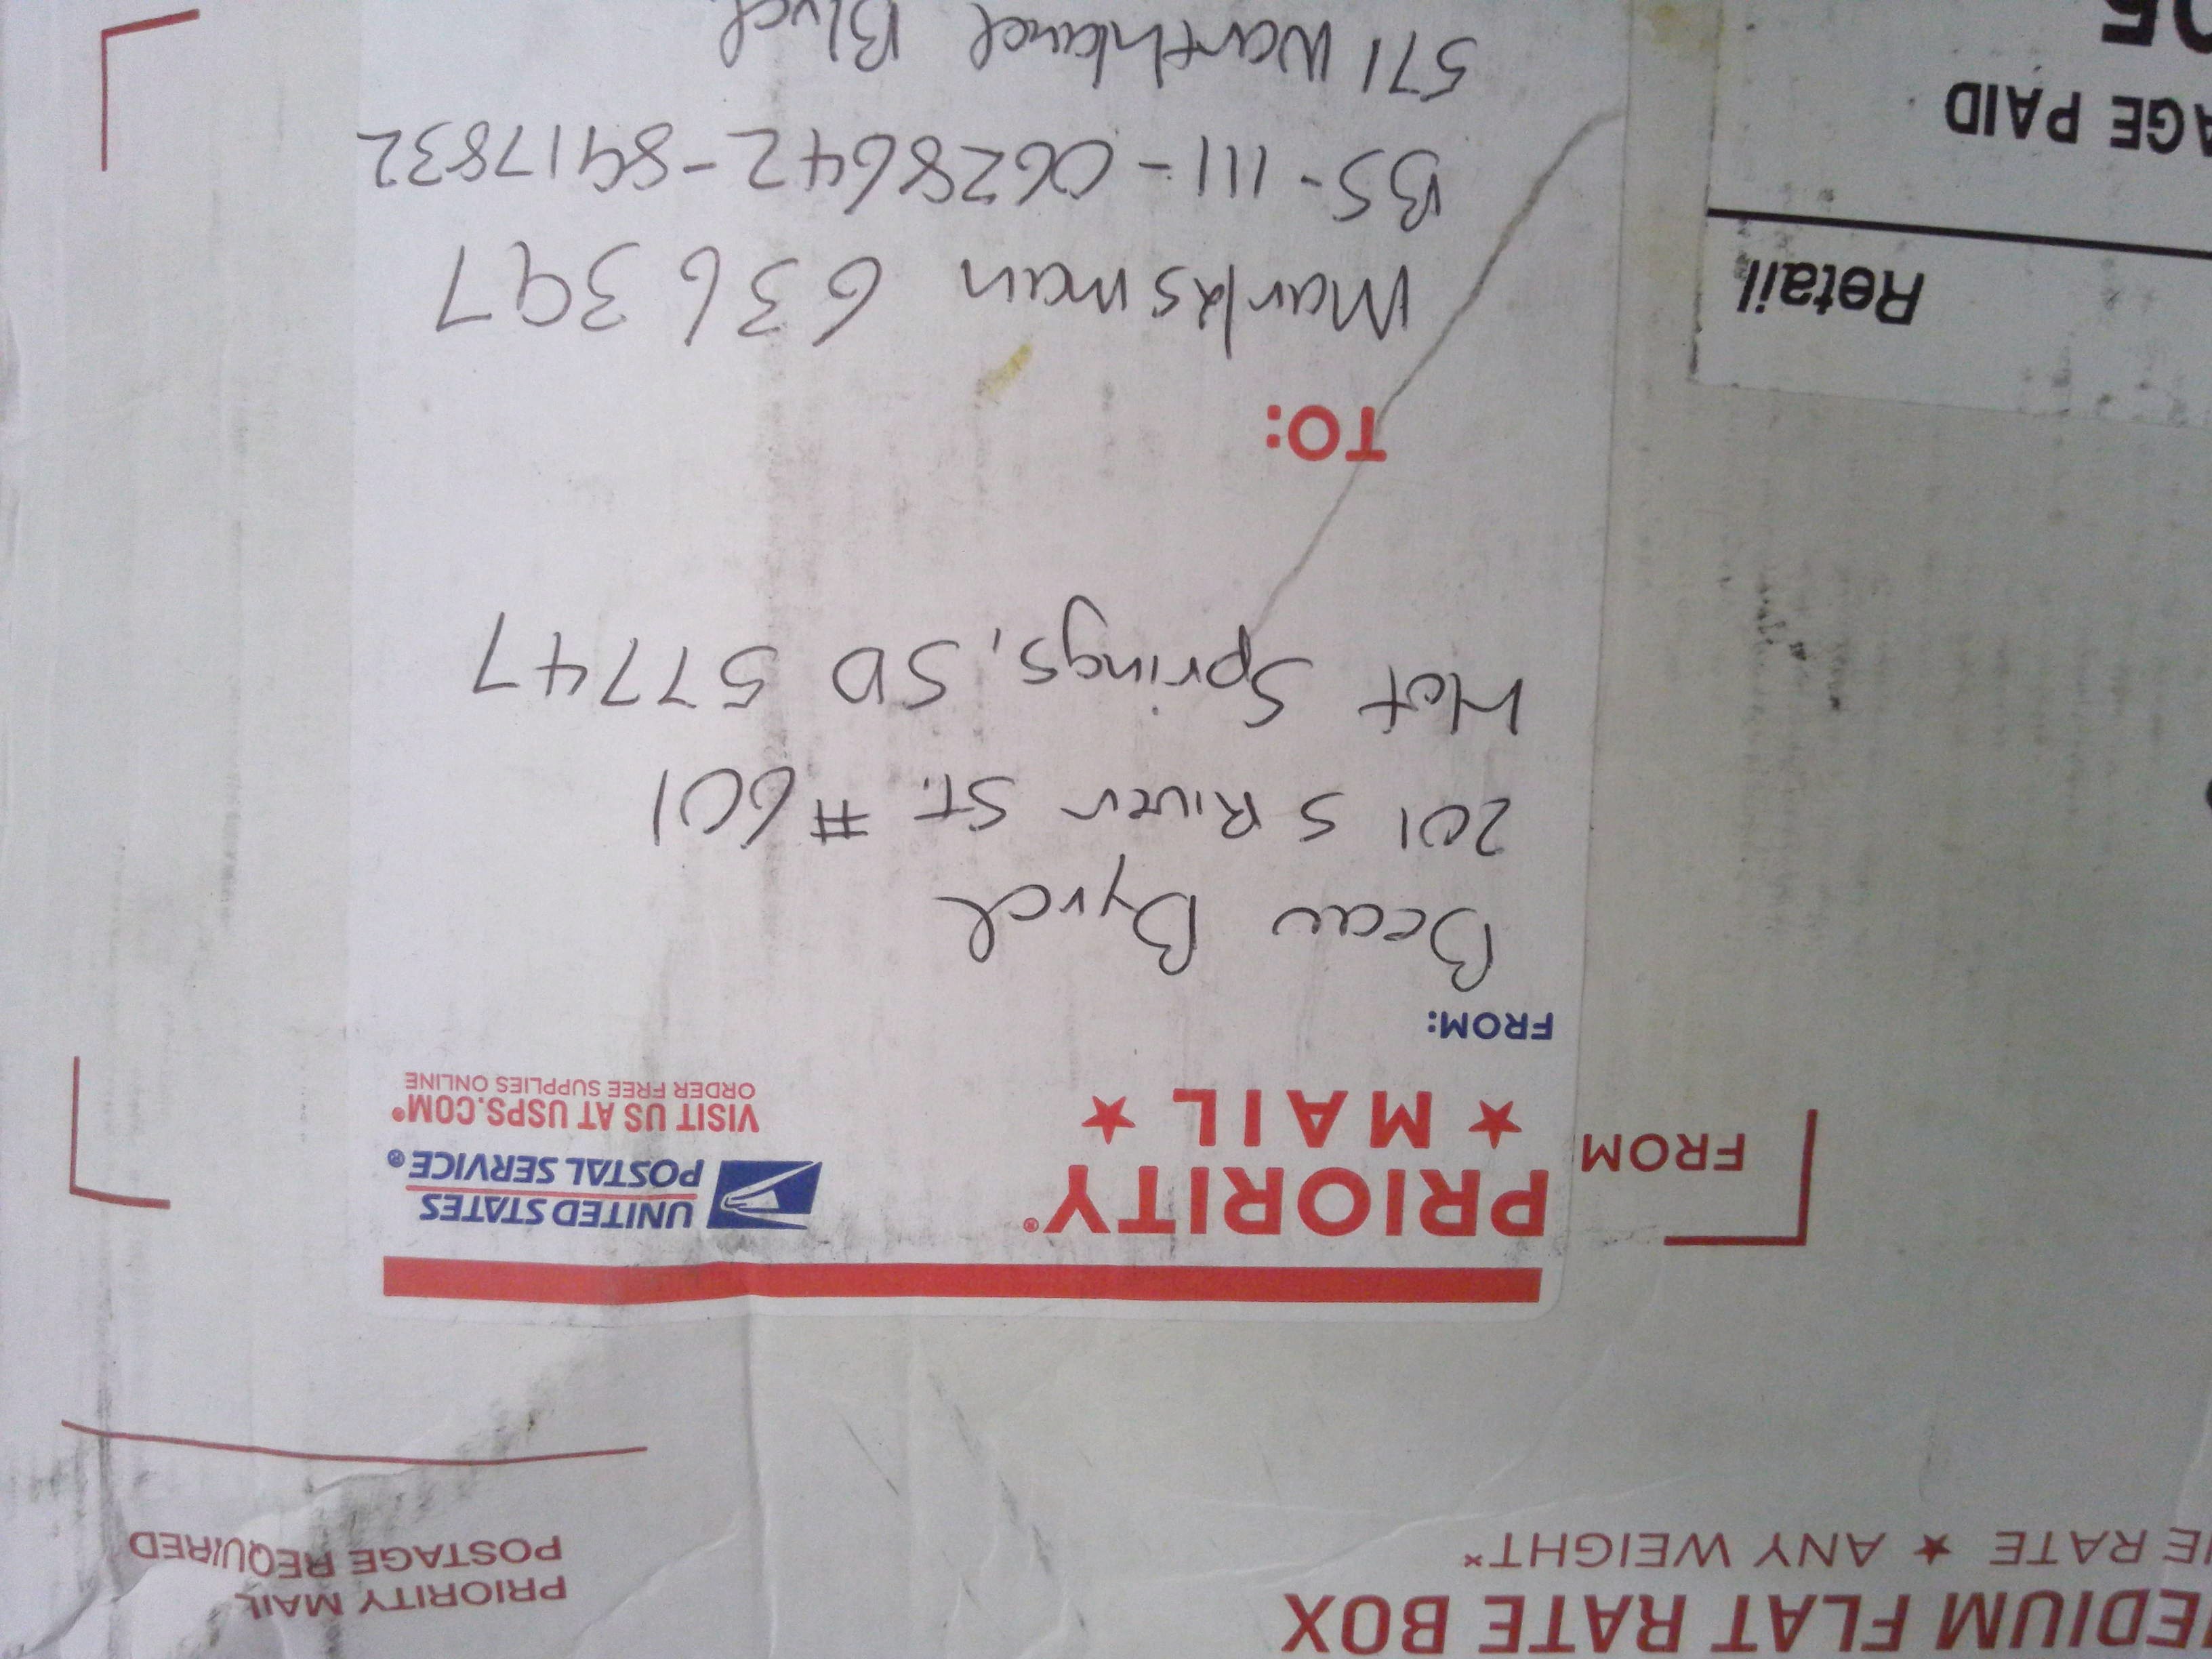 EDIUM FLAT RATE BOX
E RATE ★ ANY WEIGHT*
PRIORITY MAIL
POSTAGE REQUIRED
FROM
PRIORITY®
★ MAIL ★
UNITED STATES
POSTAL SERVICE®
VISIT US AT USPS.COM®
ORDER FREE SUPPLIES ONLINE
FROM:
Beau Byrd
201 S River St. #601
Hot Springs, SD 57747
TO:
Marksman 636397
BS-111-0628642-8917832
571 Warthland Blvd
Retail
AGE PAID
05